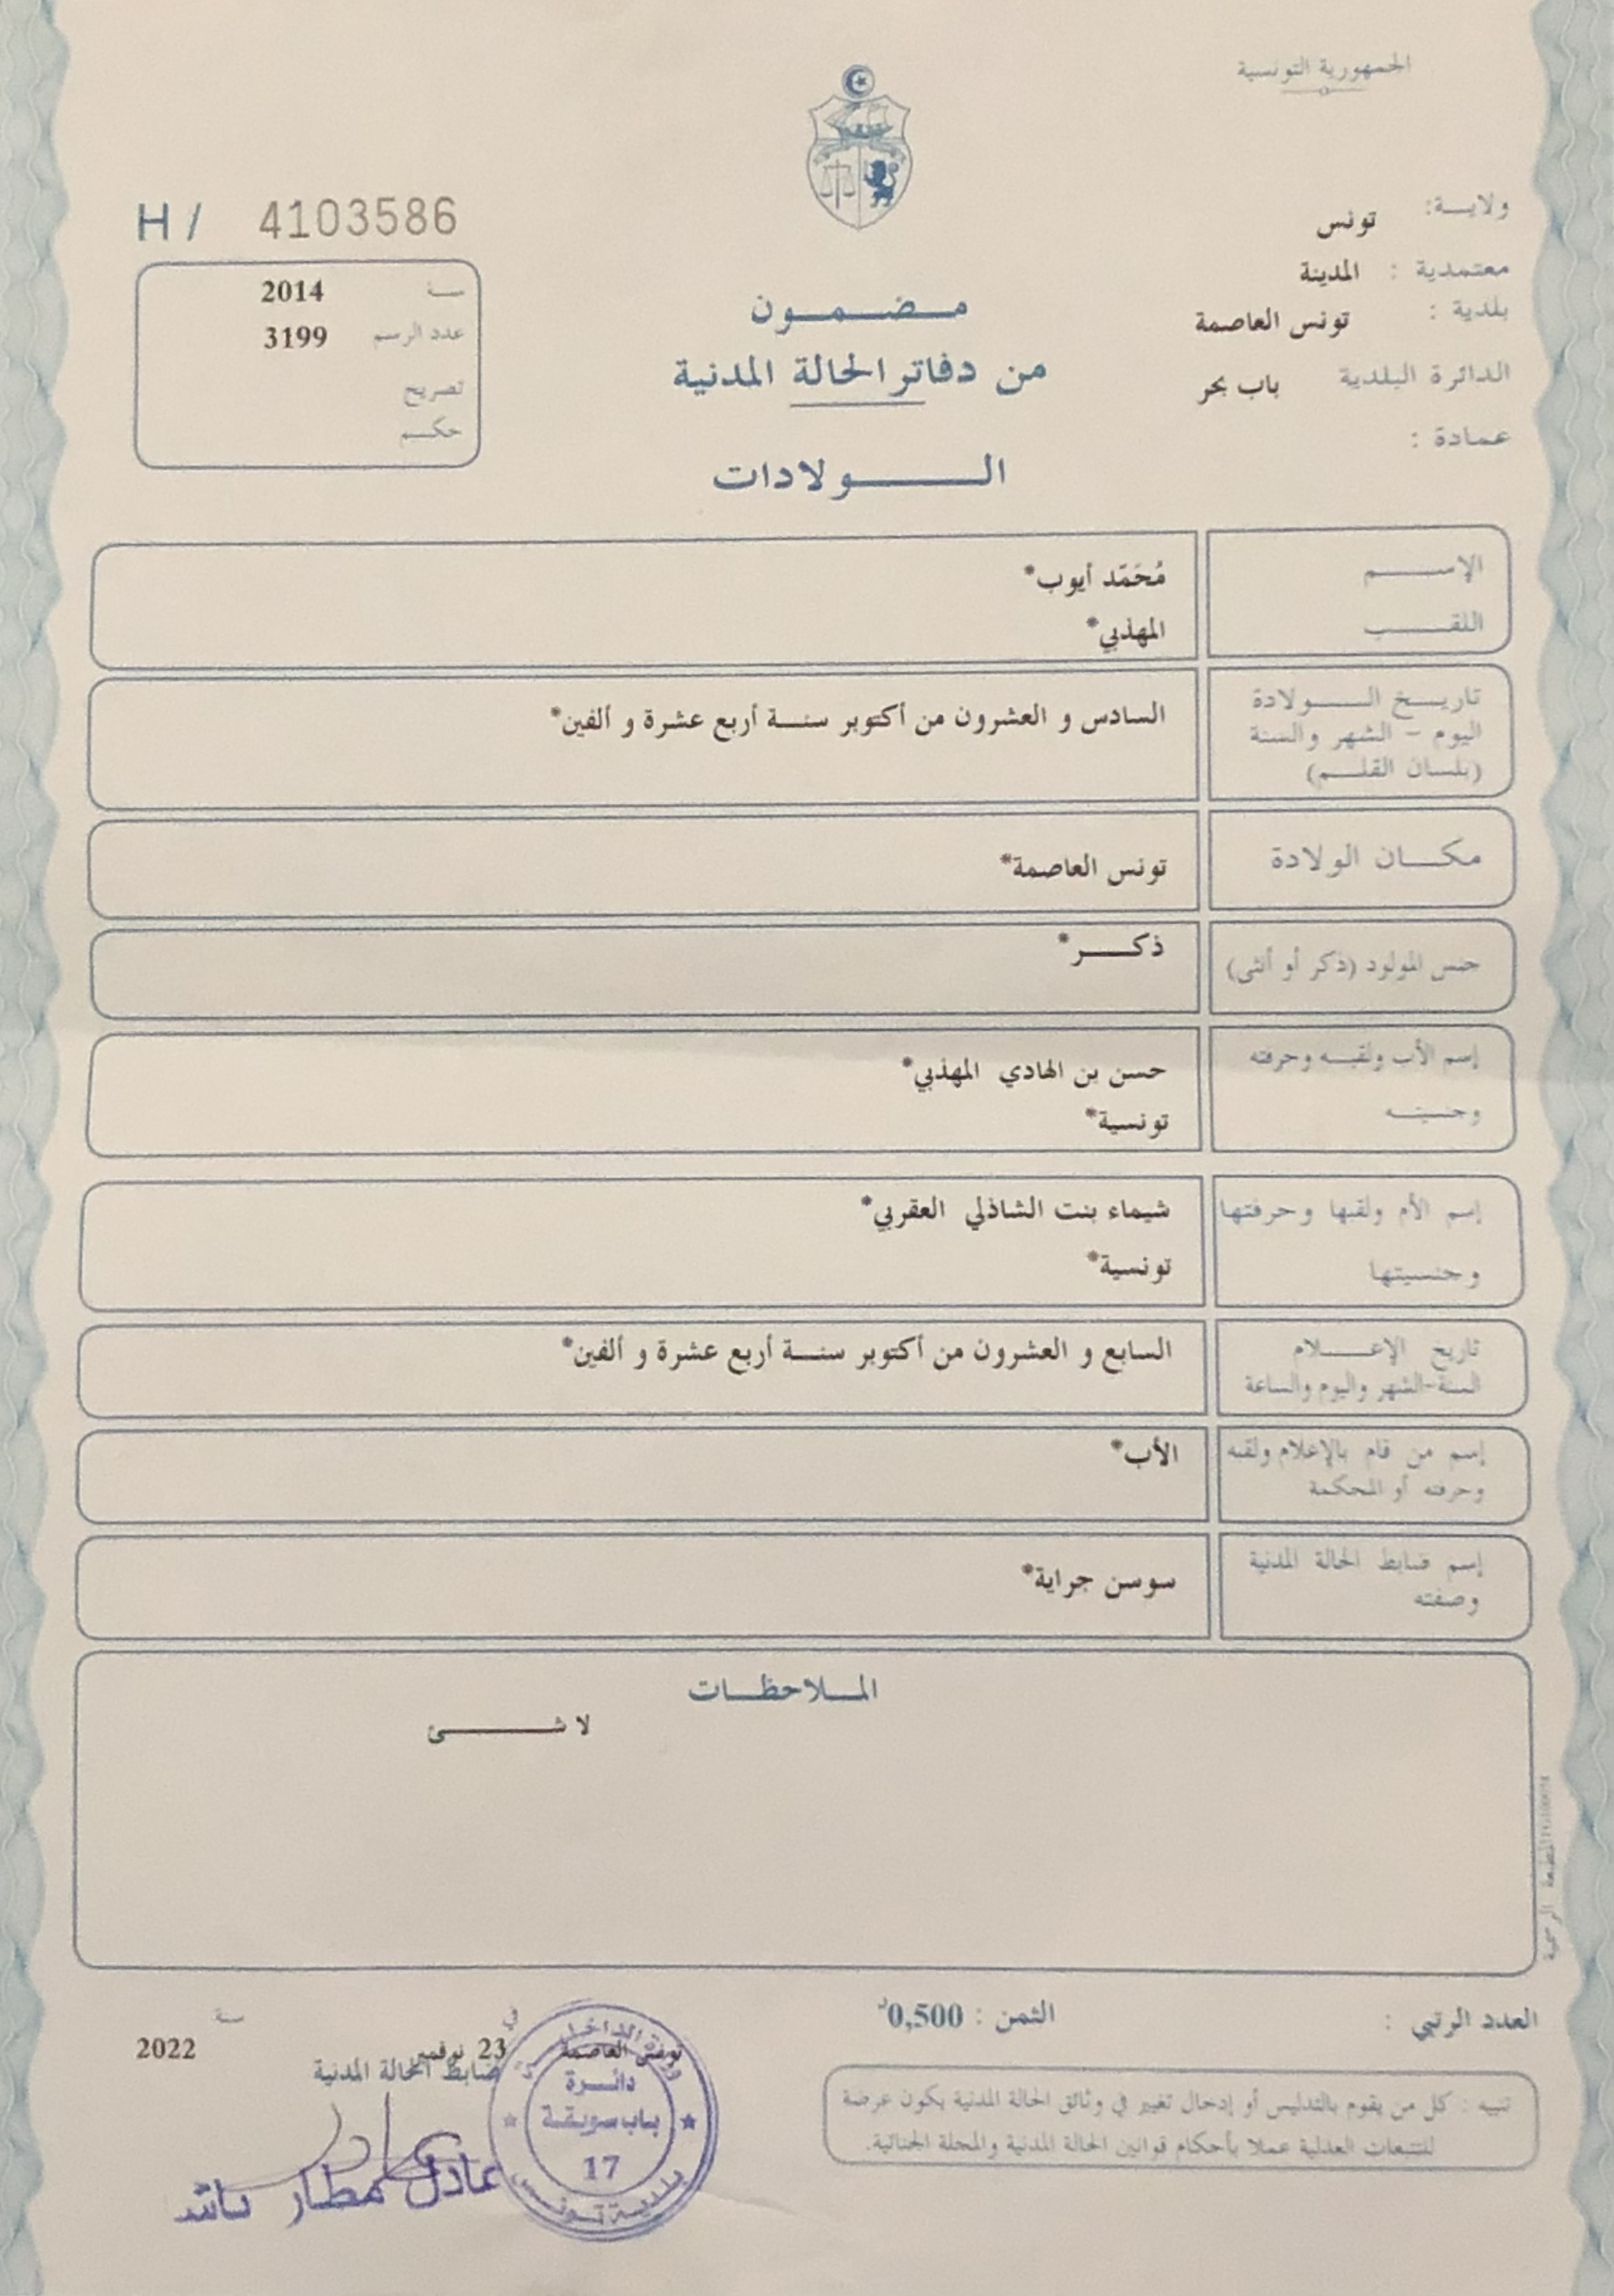 الجمهورية التونسية
ولايـــة: تونس
معتمدية : المدينة
بلدية : تونس العاصمة
الدائرة البلدية باب بحر
عمادة :
H / 4103586
سنة 2014
عدد الرسم 3199
تصريح
حكـم
مـضـمـون
من دفاتر الحالة المدنية
الـولادات
الإســـم مُحَمّد أيوب*
اللقـــب المهذبي*
تاريــخ الـــولادة السادس و العشرون من أكتوبر سنــة أربع عشرة و ألفين*
اليوم - الشهر والسنة
(بلسان القلـم)
مكــان الولادة تونس العاصمة*
جنس المولود (ذكر أو أنثى) ذكـــر*
إسم الأب ولقبـه وحرفته حسن بن الهادي المهذبي*
وجنسيته تونسية*
إسم الأم ولقبها وحرفتها شيماء بنت الشاذلي العقربي*
وجنسيتها تونسية*
تاريخ الإعــلام السابع و العشرون من أكتوبر سنــة أربع عشرة و ألفين*
السنة-الشهر واليوم والساعة
إسم من قام بالإعلام ولقبه الأب*
وحرفته أو المحكمة
إسم ضابط الحالة المدنية سوسن جراية*
وصفته
المـلاحظـات
لا شـــئ
المطبعة الرسمية
العدد الرتبي :
الثمن : 0,500د
تونس العاصمة في 23 نوفمبر سنة 2022
ضابط الحالة المدنية
دائـرة
باب سويقـة
17
بلديـة تونـس
عادل
تنبيه : كل من يقوم بالتدليس أو إدخال تغيير في وثائق الحالة المدنية يكون عرضة
للتتبعات العدلية عملا بأحكام قوانين الحالة المدنية والمجلة الجنائية.